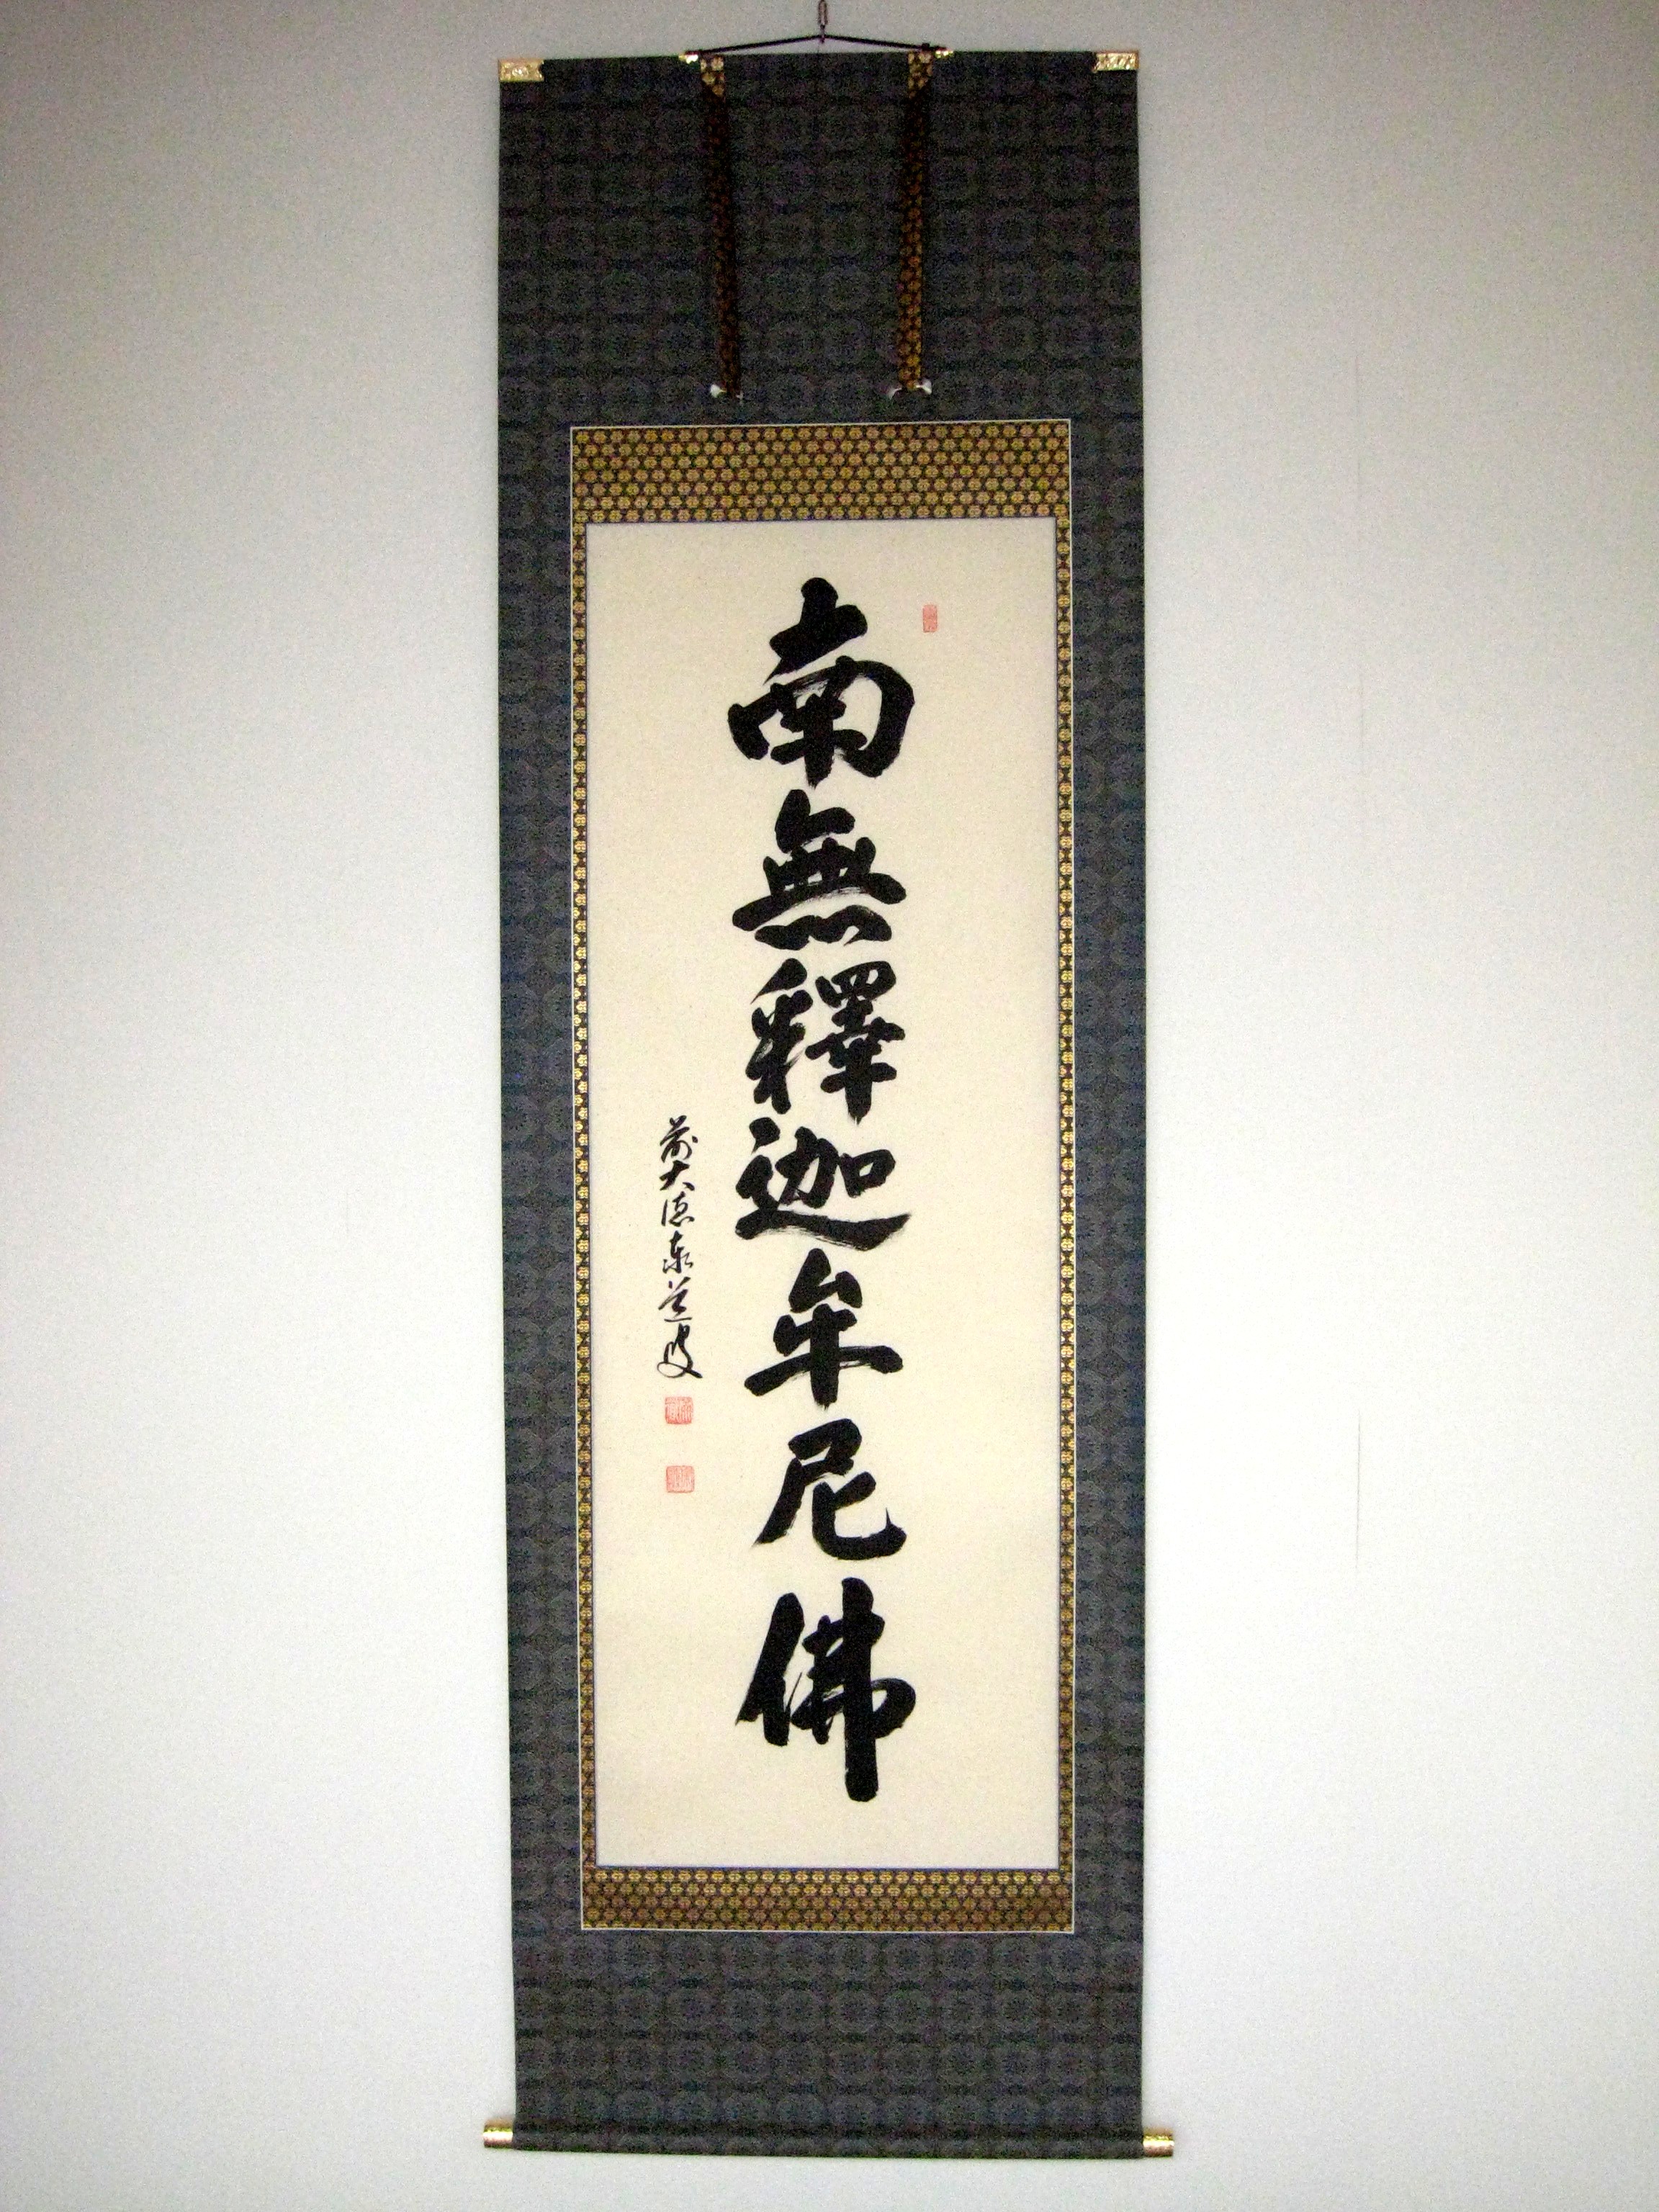 南無釋迦牟尼佛
前大徳泰道